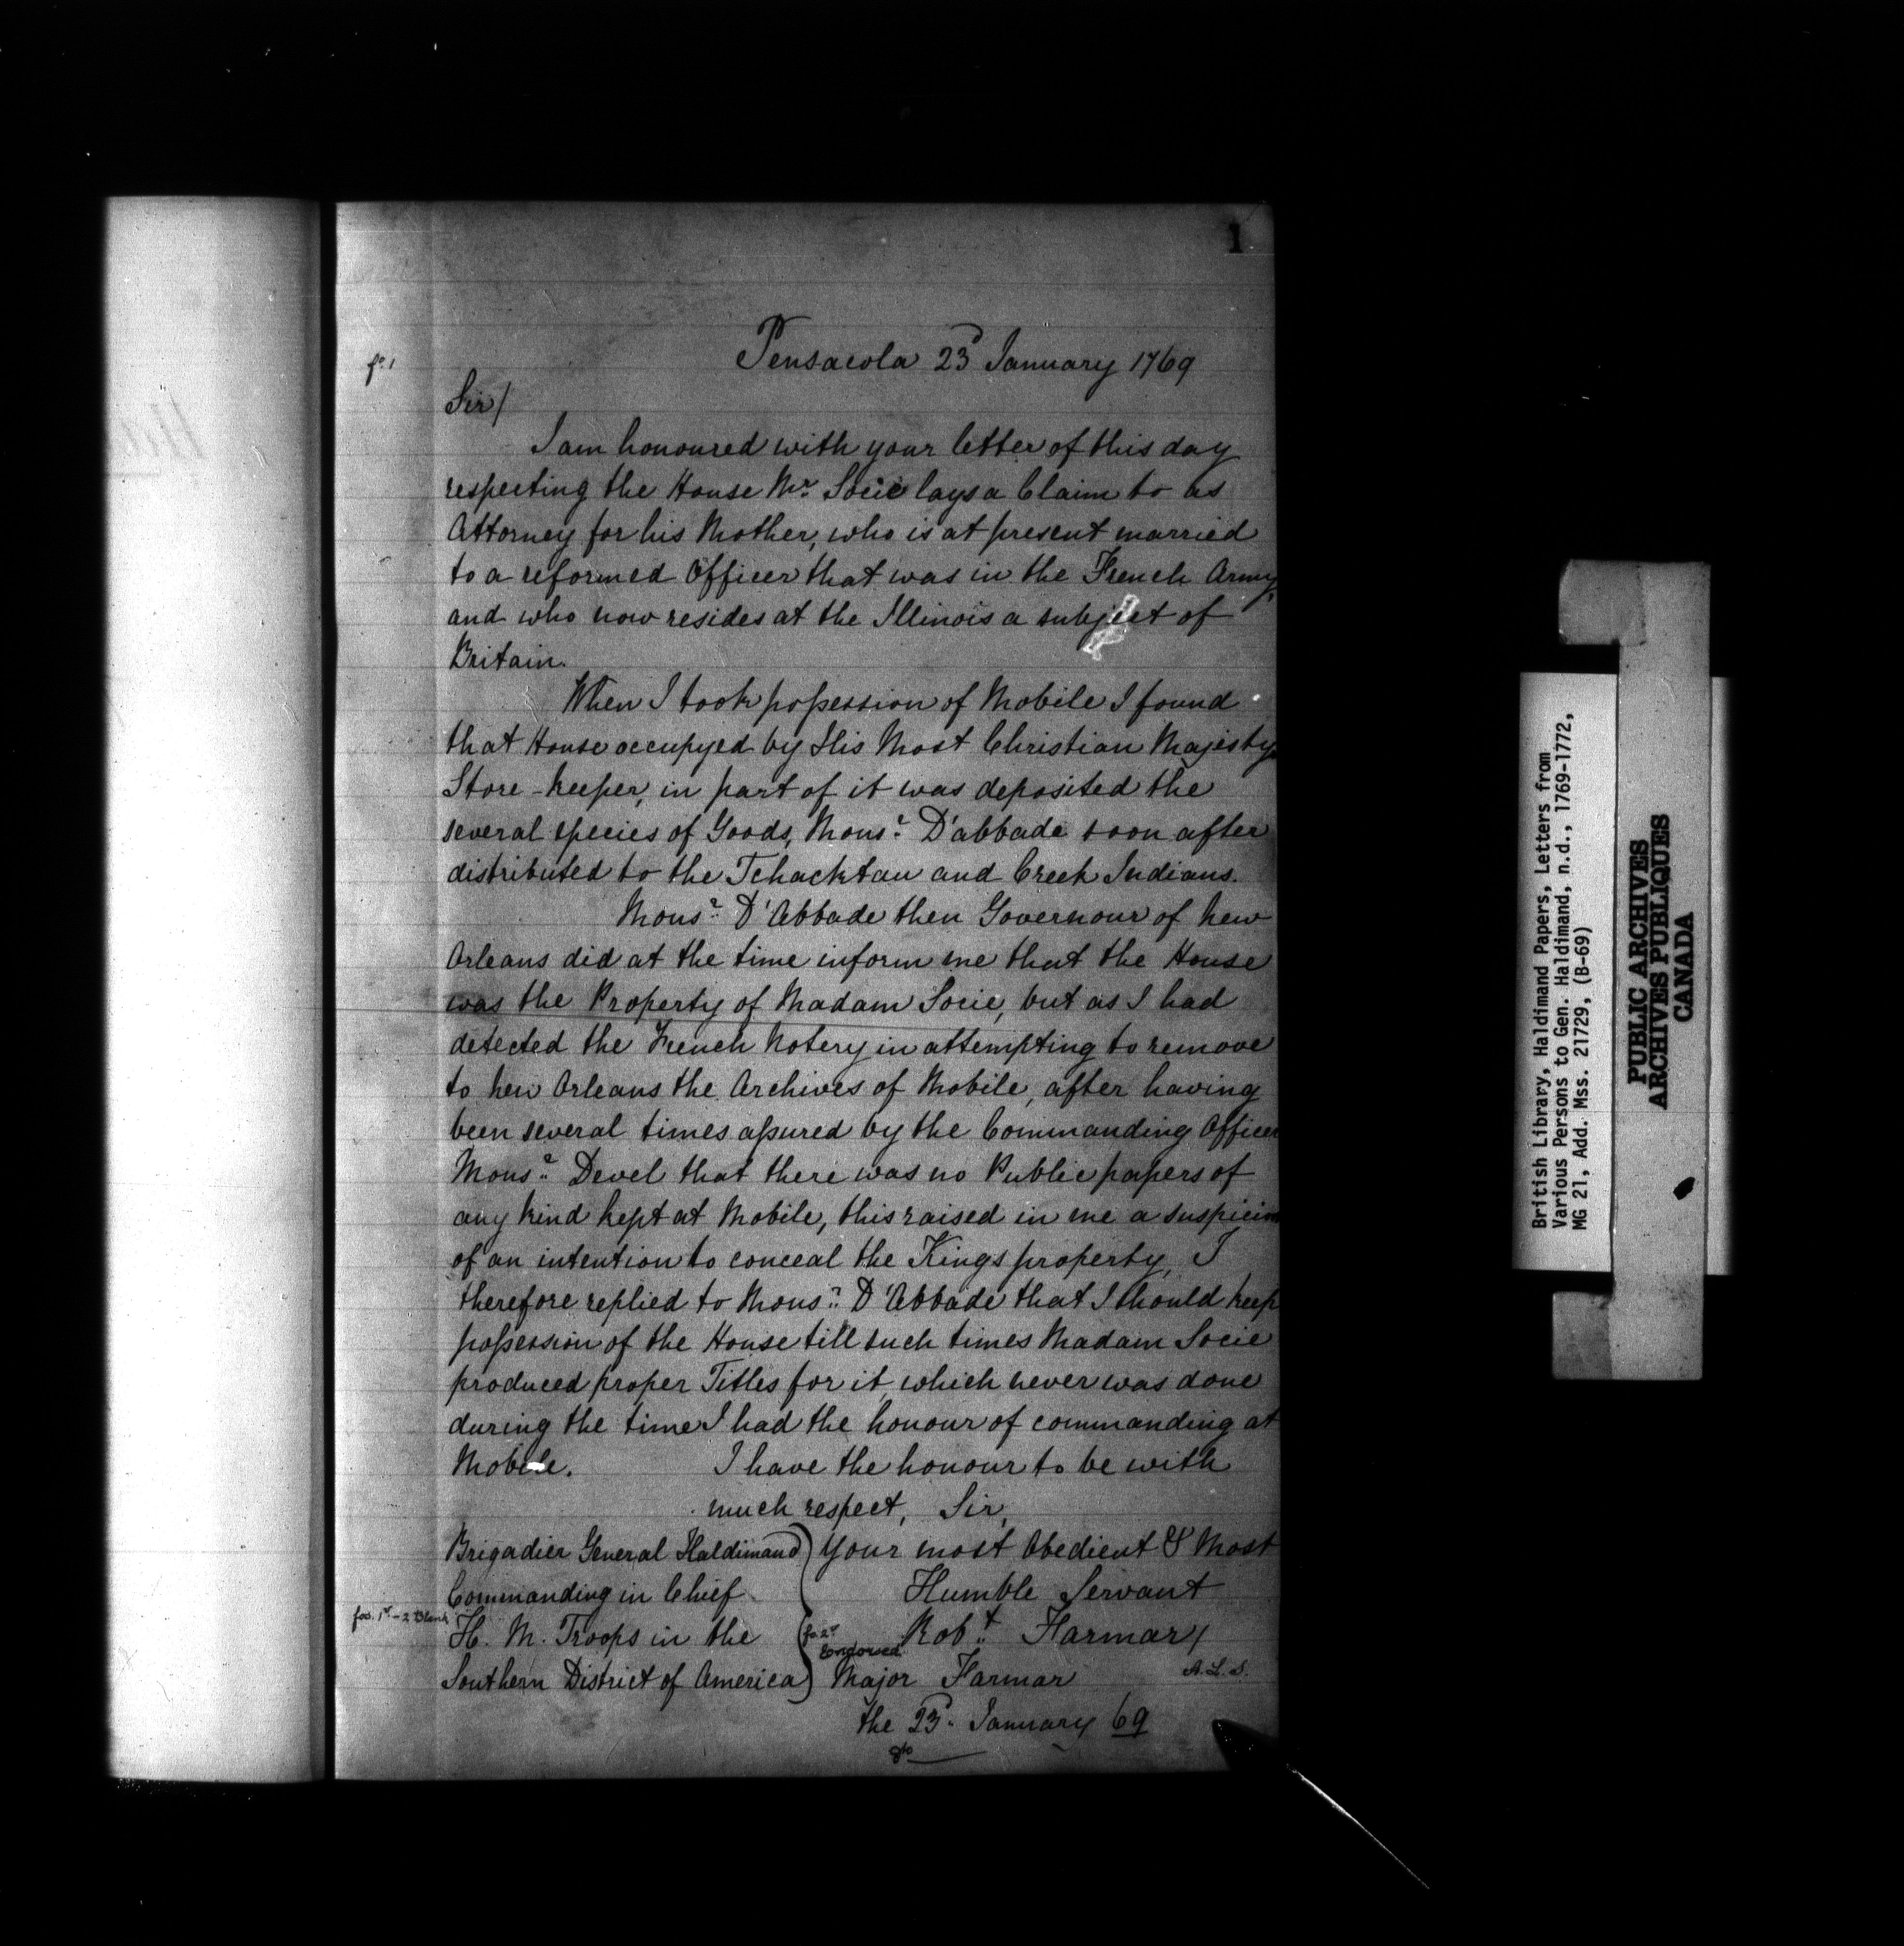 1
Pensacola 23d January 1769
fo. 1
Sir/
I am honoured with your letter of this day
respecting the House Mr. Socie lays a Claim to as
Attorney for his Mother, who is at present married
to a reformed Officer that was in the French Army,
and who now resides at the Illinois a subject of
Britain.
When I took possession of Mobile I found
that House occupyed by His Most Christian Majesty
Store-keeper, in part of it was deposited the
several species of Goods, Monsr. D'abbade soon after
distributed to the Tchacktau and Creek Indians.
Monsr. D'Abbade then Governour of New
Orleans did at the time inform me that the House
was the Property of Madam Socie, but as I had
detected the French Notery in attempting to remove
to New Orleans the Archives of Mobile, after having
been several times assured by the Commanding Officer
Monsr. Devel that there was no Public papers of
any kind kept at Mobile, this raised in me a suspicion
of an intention to conceal the Kings property, I
therefore replied to Monsr. D'Abbade that I should keep
possession of the House till such times Madam Socie
produced proper Titles for it, which never was done
during the time I had the honour of commanding at
Mobile. I have the honour to be with
much respect, Sir,
Brigadier General Haldimand Your most Obedient & Most
Commanding in Chief Humble Servant
fos. 1v-2 Blank
H. M. Troops in the Robt. Farmar/
fo. 2v
Endorsed
A.L.S.
Southern District of America Major Farmar
the 23d. January 69
British Library, Haldimand Papers, Letters from
Various Persons to Gen. Haldimand, n.d., 1769-1772,
MG 21, Add. Mss. 21729, (B-69)
PUBLIC ARCHIVES
ARCHIVES PUBLIQUES
CANADA